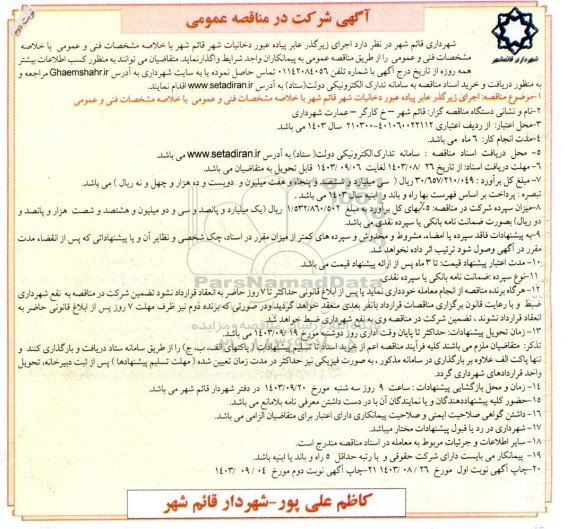 آگهی شرکت در مناقصه عمومی
نوبت دوم
شهرداری قائمشهر
شهرداری قائم شهر در نظر دارد اجرای زیرگذر عابر پیاده عبور دخانیات شهر قائم شهر با خلاصه مشخصات فنی و عمومی با خلاصه
مشخصات فنی و عمومی را از طریق مناقصه عمومی به پیمانکاران واجد شرایط واگذار نماید. متقاضیان می توانند به منظور کسب اطلاعات بیشتر
همه روزه از تاریخ درج آگهی با شماره تلفن ۰۱۱۴۲۰۸۴۰۵۶ تماس حاصل نموده یا به سایت شهرداری به آدرس Ghaemshahr.ir مراجعه و
به منظور دریافت و خرید اسناد مناقصه به سامانه تدارک الکترونیکی دولت(ستاد) به آدرس www.setadiran.ir اقدام نمایند.
۱-موضوع مناقصه: اجرای زیرگذر عابر پیاده عبور دخانیات شهر قائم شهر با خلاصه مشخصات فنی و عمومی با خلاصه مشخصات فنی و عمومی
۲-نام و نشانی دستگاه مناقصه گزار: قائم شهر – خ کارگر – عمارت شهرداری
۳-محل اعتبار: از ردیف اعتباری ۴۰۱۰۶۰۰۲۲۱۱۲-۲۱۰۳۰۰ سال ۱۴۰۳ می باشد.
۴-مدت انجام کار: ۶ ماه می باشد.
۵- محل دریافت اسناد مناقصه : سامانه تدارک الکترونیکی دولت( ستاد) به آدرس www.setadiran.ir می باشد.
۶- مهلت دریافت اسناد: از تاریخ ۲۶ /۱۴۰۳/۰۸ لغایت ۱۴۰۳/۰۹/۰۶ قابل تحویل به متقاضیان می باشد.
۷- مبلغ کل برآورد : ۳۰/۶۵۷/۲۱۰/۰۴۹ ریال ( سی میلیارد و ششصد و پنجاه و هفت میلیون و دویست و ده هزار و چهل و نه ریال ) می باشد.
تبصره : پرداخت بر اساس فهرست بها راه و باند و ابنیه سال ۱۴۰۳ می باشد .
۸-میزان سپرده شرکت در مناقصه: ۵٪بهای کل برآورد به مبلغ ۱/۵۳۲/۸۶۰/۵۰۲ ریال (یک میلیارد و پانصد و سی و دو میلیون و هشتصد و شصت هزار و پانصد و
دو ریال) بصورت ضمانت نامه بانکی یا سپرده نقدی می باشد.
۹-به پیشنهادات فاقد سپرده یا امضاء، مشروط و مخدوش و سپرده های کمتر از میزان مقرر در اسناد، چک شخصی و نظایر آن و یا پیشنهاداتی که پس از انقضاء مدت
مقرر در آگهی وصول شود ترتیب اثر داده نخواهد شد.
۱۰-مدت اعتبار پیشنهاد قیمت: تا ۳ ماه پس از ارائه پیشنهاد قیمت می باشد.
۱۱-نوع سپرده :ضمانت نامه بانکی یا سپرده نقدی
۱۲-هرگاه برنده مناقصه از انجام معامله خودداری نماید یا پس از ابلاغ قانونی حداکثر تا ۷ روز حاضر به انعقاد قرارداد نشود تضمین شرکت در مناقصه به نفع شهرداری
ضبط و با رعایت قانون برگزاری مناقصات قرارداد با نفر بعدی منعقد خواهد گردید ودر صورتی که برنده دوم نیز ظرف مهلت ۷ روز پس از ابلاغ قانونی حاضر به
انعقاد قرارداد نشوند ، تضمین شرکت در مناقصه وی به نفع شهرداری ضبط خواهد شد.
۱۳- زمان تحویل پیشنهادات: حداکثر تا پایان وقت اداری روز دوشنبه مورخ ۱۹ /۱۴۰۳/۰۹ می باشد.
تذکر: متقاضیان ملزم می باشند کلیه فرآیند مناقصه اعم از خرید اسناد تا تسلیم پیشنهادات ( پاکتهای الف، ب، ج) را از طریق سامانه ستاد دریافت و بارگذاری کنند و
تنها پاکت الف علاوه بر بارگذاری در سامانه مذکور ، به صورت فیزیکی نیز حداکثر در مدت زمان تعیین شده ( مهلت تسلیم پیشنهادها ) پس از ثبت دبیرخانه، تحویل
واحد قراردادهای شهرداری گردد.
۱۴- زمان و محل بازگشایی پیشنهادات : ساعت ۹ روز سه شنبه مورخ ۱۴۰۳/۰۹/۲۰ در دفتر شهردار قائم شهر می باشد.
۱۵-حضور کلیه پیشنهاددهندگان و یا نمایندگان آن با در دست داشتن معرفی نامه بلامانع می باشد.
۱۶- داشتن گواهی صلاحیت ایمنی و صلاحیت پیمانکاری دارای اعتبار برای متقاضیان الزامی می باشد.
۱۷-شهرداری در رد یا قبول پیشنهادات مختار میباشد.
۱۸-سایر اطلاعات و جزئیات مربوط به معامله در اسناد مناقصه مندرج است.
۱۹- پیمانکار می بایست دارای شرکت حقوقی و با رتبه حداقل ۵ راه و باند یا ابنیه باشد.
۲۰-چاپ آگهی نوبت اول مورخ ۲۶ /۱۴۰۳/۰۸ ۲۱-چاپ آگهی نوبت دوم مورخ ۰۴ /۰۹ /۱۴۰۳
کاظم علی پور-شهردار قائم شهر
ParsNamadData